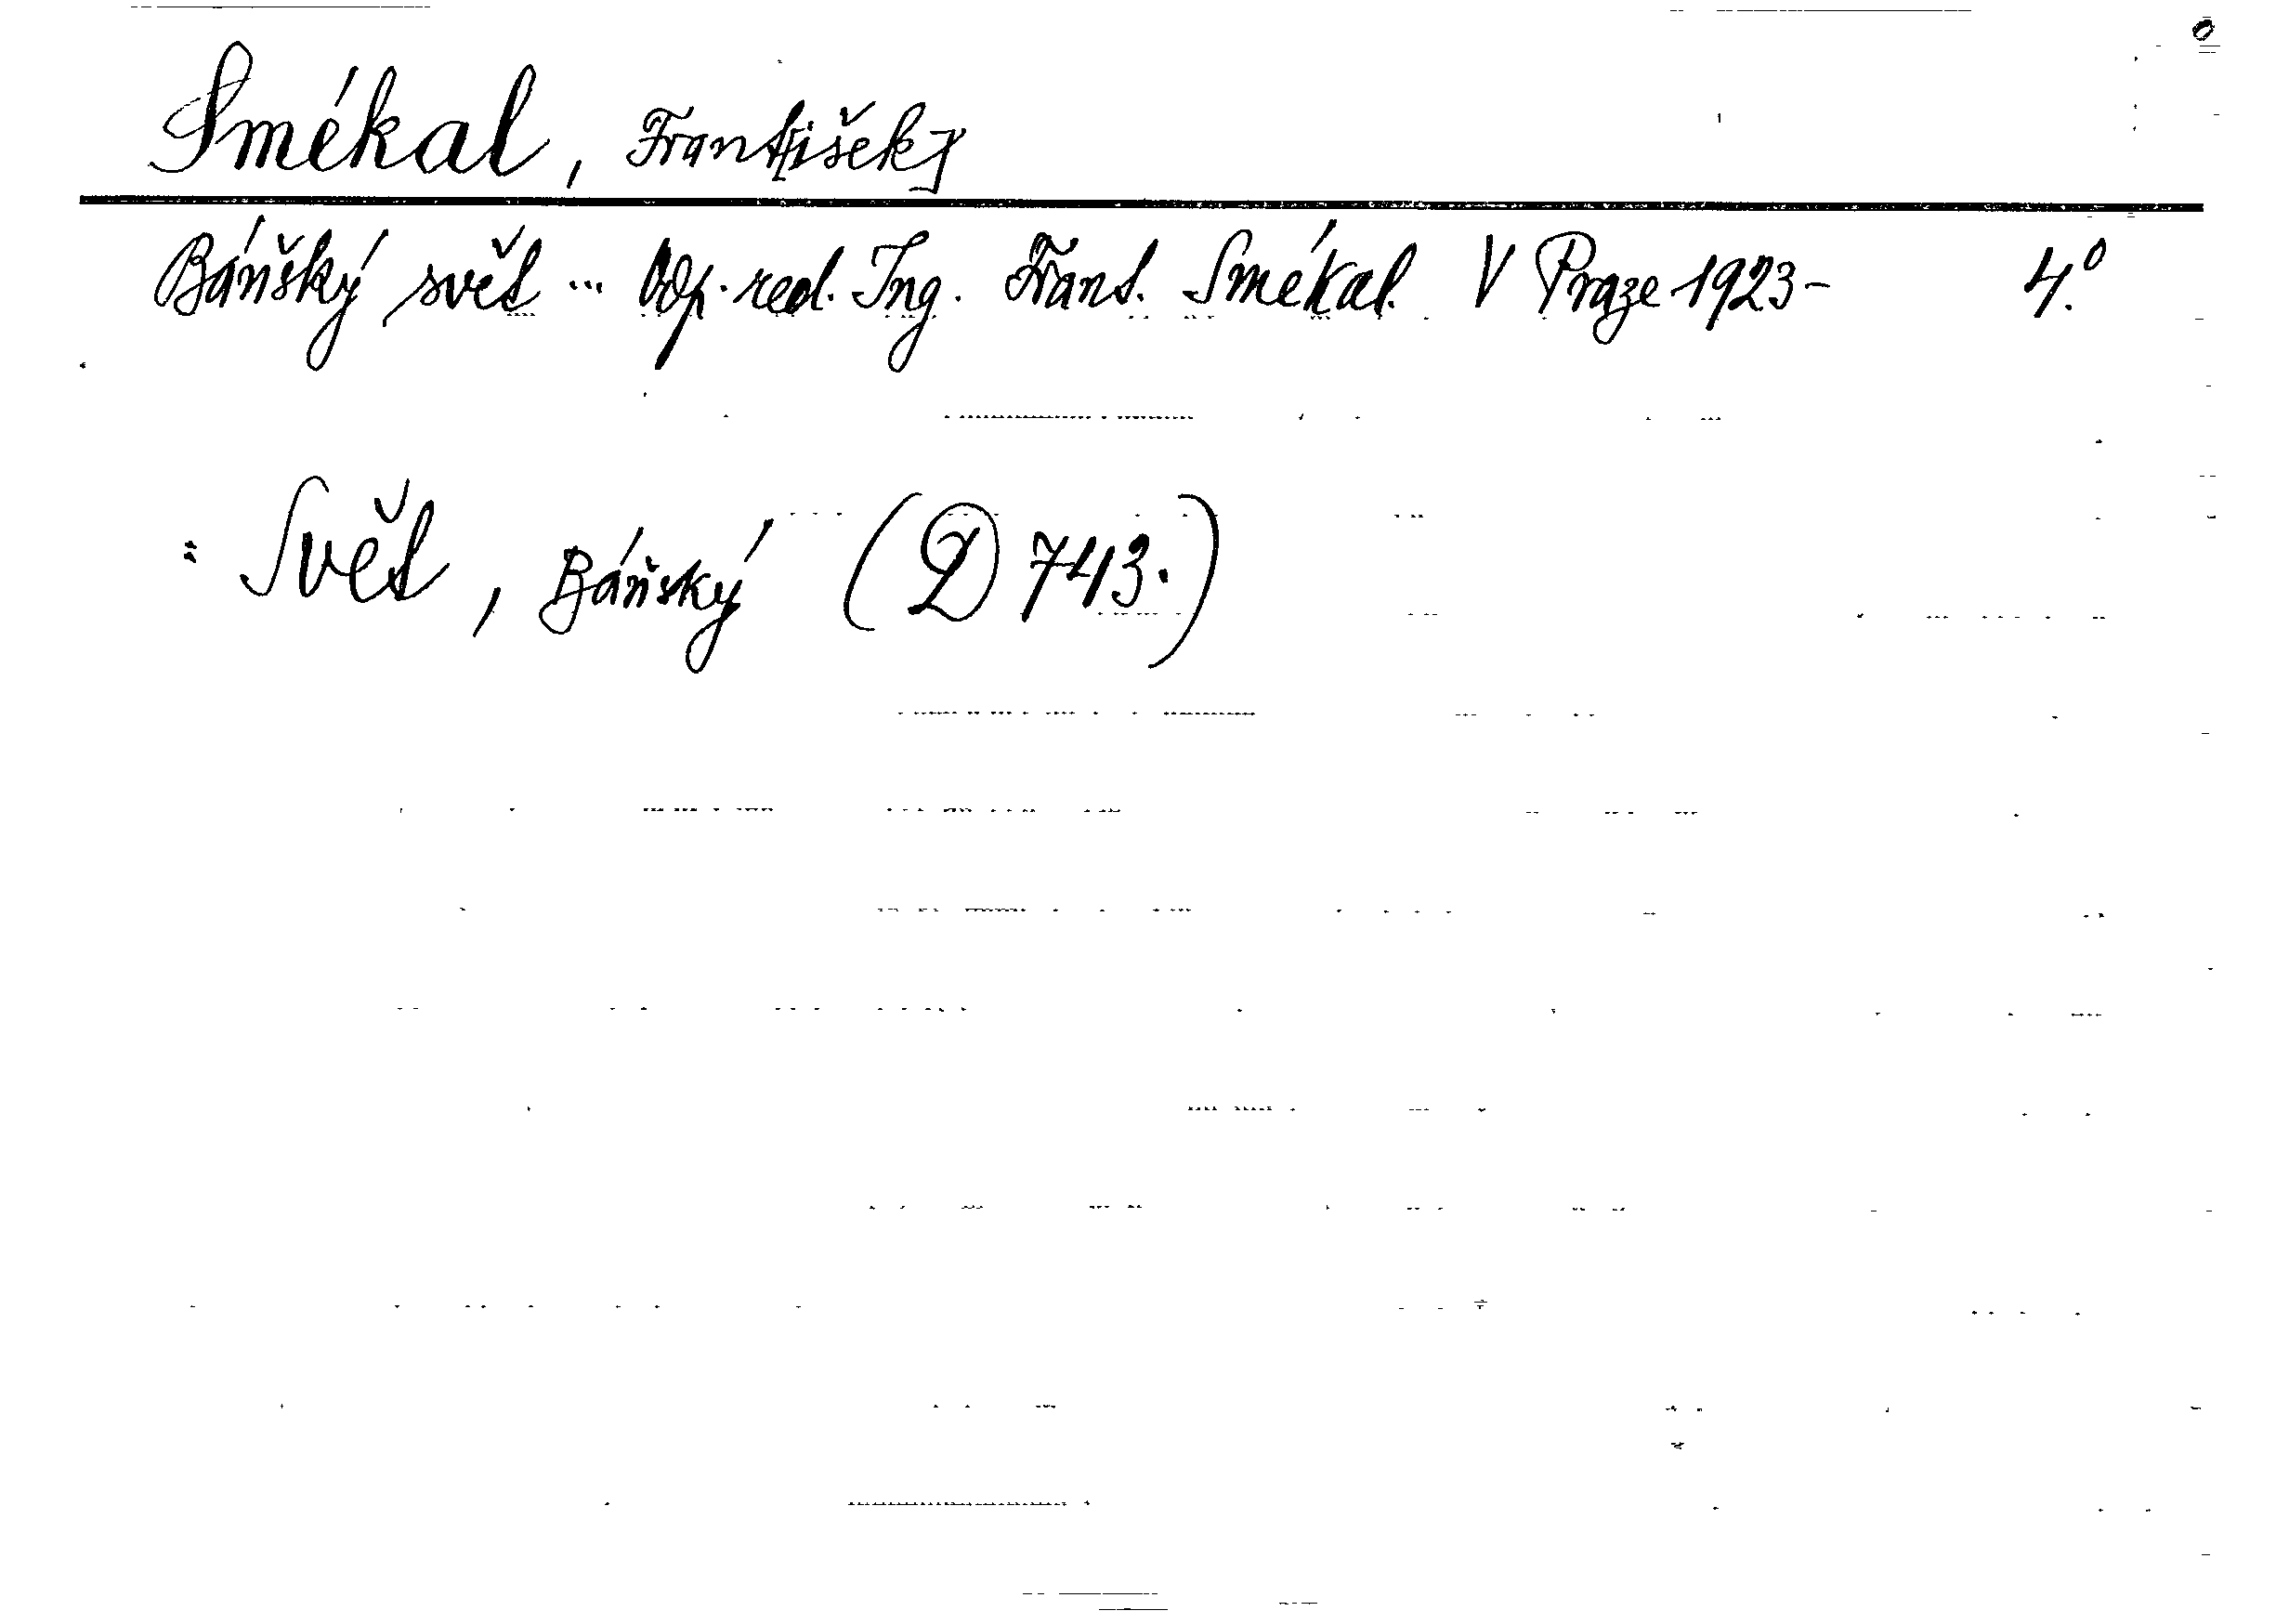 Smékal, Frant[išek]
Báňský svět ... Odp. red. Ing. Frant. Smékal. V Praze 1923- 4.°
: Svět, Báňský (D 743.)